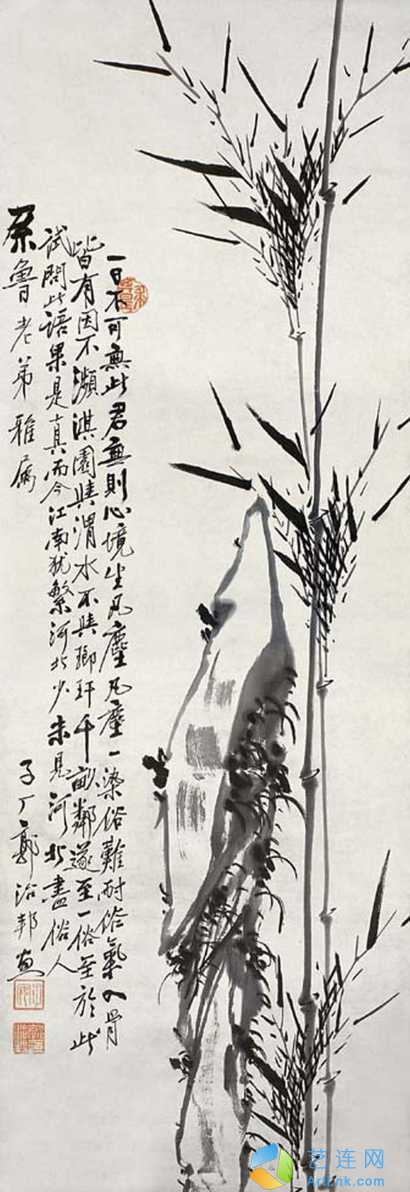 一日不可無此君無則心境生凡塵凡塵一染俗難耐俗氣入骨
皆有因不瀕淇園與渭水不與瑯玕千畝鄰遂至一俗至於此
試問此語果是真而今江南犹繁河北少未見河北盡俗人
魯老弟雅屬
子丁鄭治邦畫
艺连网
ArtLink.com